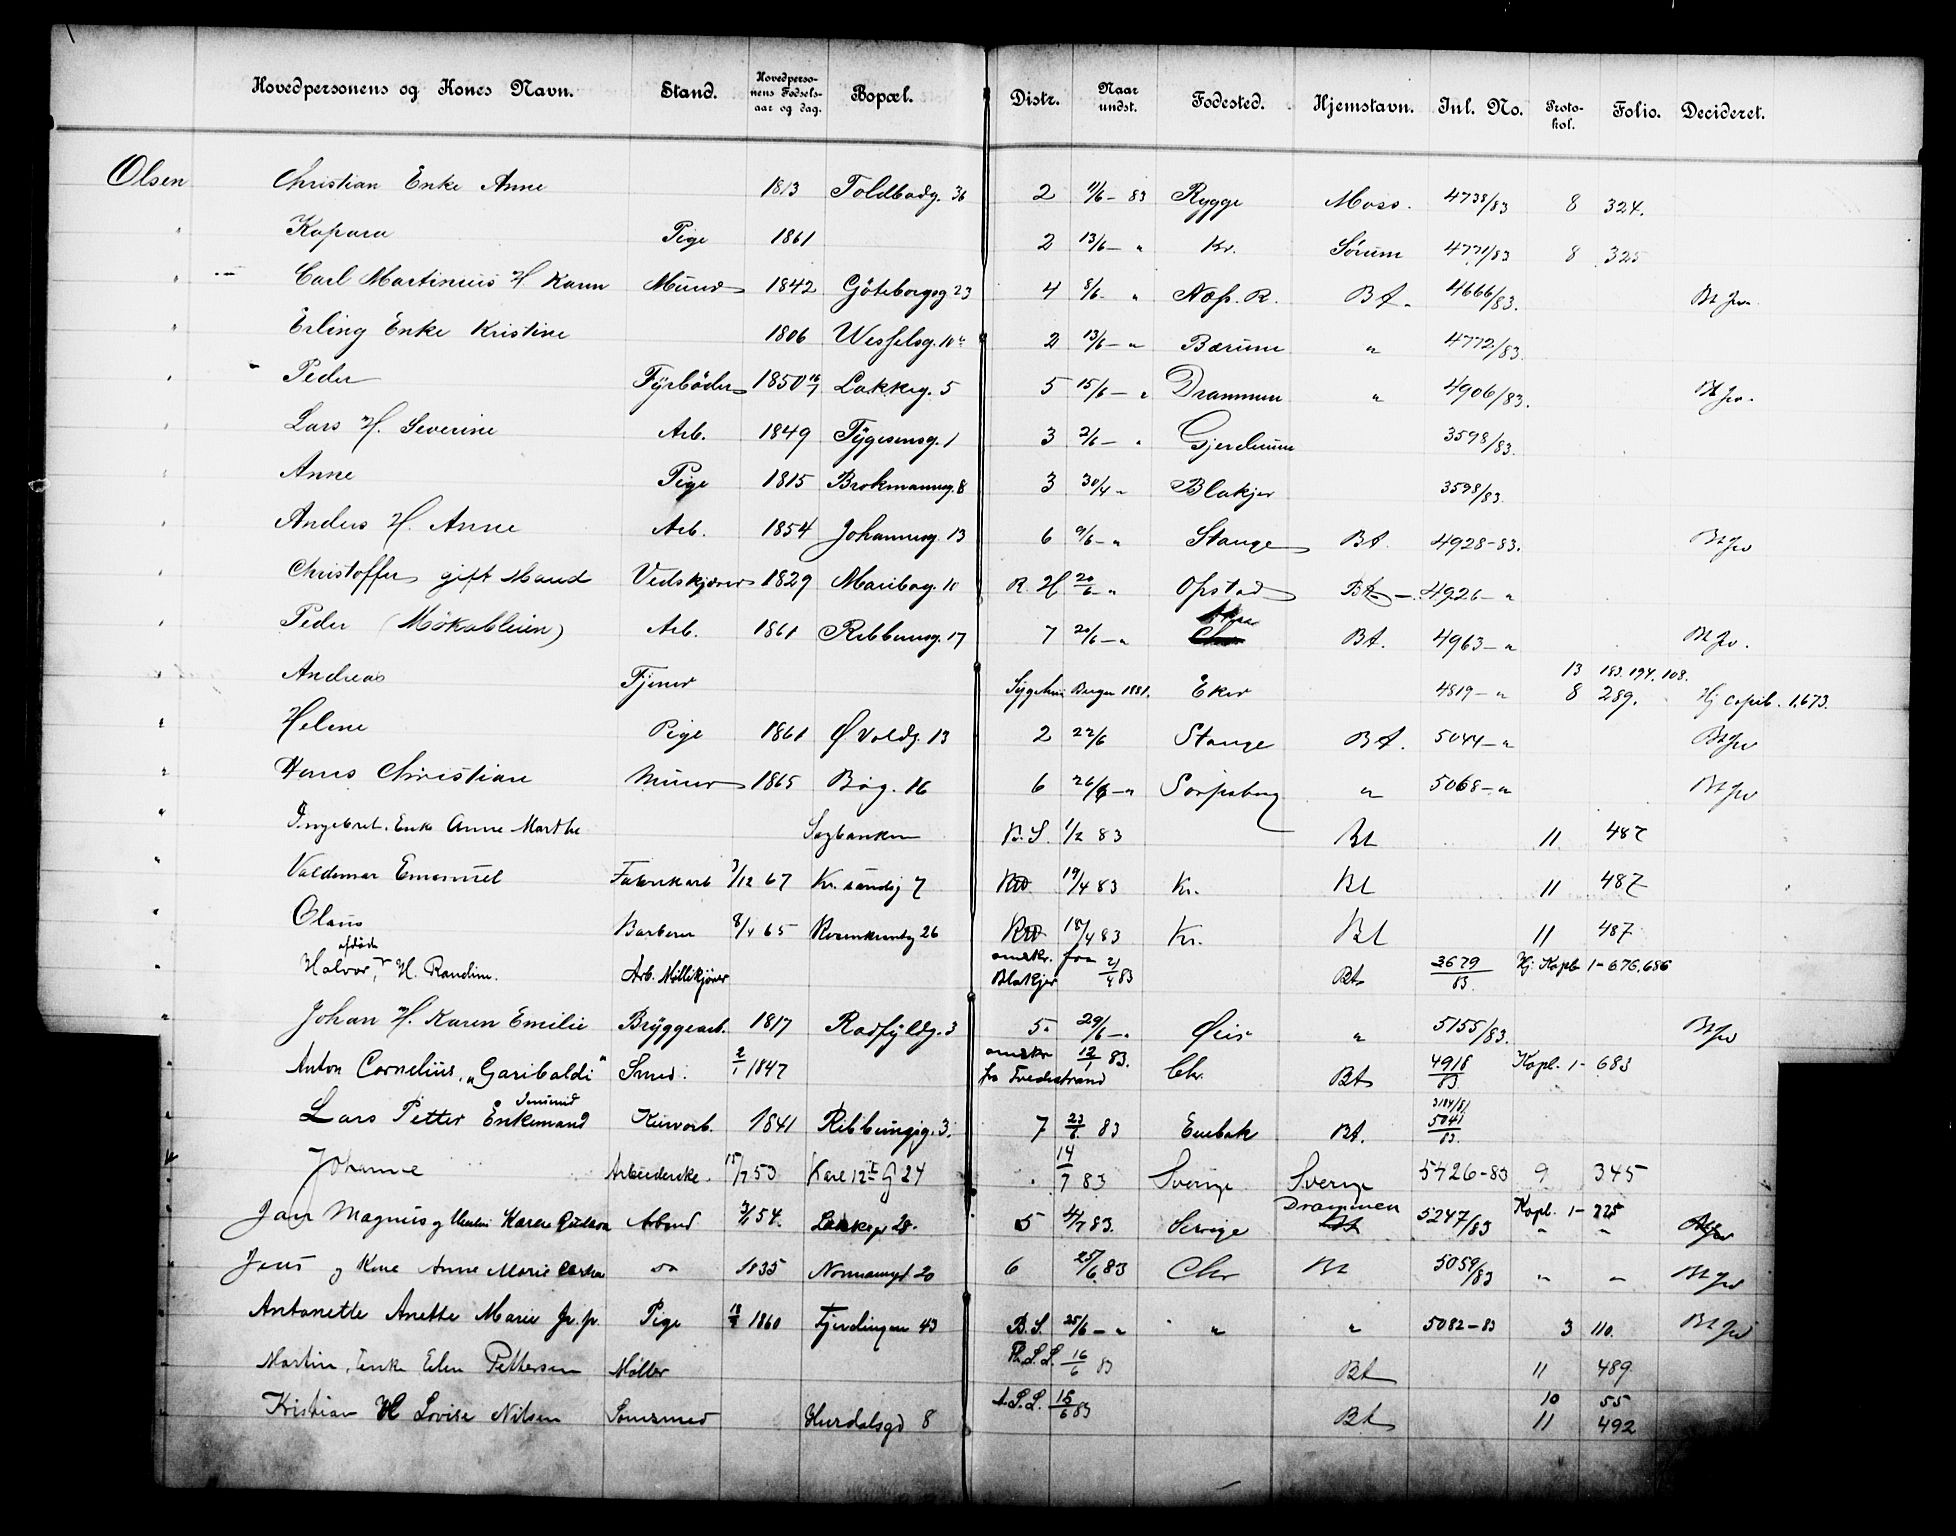 Hovedpersonens og Kones Navn. Stand. Hovedpersonens Fødselsaar og dag. Bopæl. Distr. Naar undst. Fødested. Hjemstavn. Inl. No. Protokol. Folio. Decideret.
Olsen Christian Enke Anne 1813 Toldbodg. 36 2 11/6 - 83 Rygge Moss. 4738/83 8 324.
" Pige 1861 2 13/6 - " Kr. Sørum 4771/83 8 325
" Carl Martinius H. Karen Murer 1842 Göteborgsg 23 4 8/6 " Næs. R. Bt. 4666/83. Bt Jrv.
" Erling Enke Kristine 1806 Wesselsg. 10 2 13/6 - " Bærum " 4772/83.
" Peder Fyrböder 1850 16/7 Lakkeg. 5 5 15/6 - " Drammen " 4906/83. Bt Jrv.
" Lars H. Severine Arb. 1849 Tygesensg. 1 3 2/6 - " Gjerdrum 3598/83.
" Anne Pige 1815 Brokmannsg. 8 3 30/4 " Blakjer 3598/83.
" Anders H. Anne Arb. 1854 Johannesg. 13 6 9/6 - " Stange Bt. 4928-83. Bt Jrv
" Christoffer gift Mand Vedskjærer 1829 Maribog. 10 R. H 20/6 " Opstad Bt - 4926 - "
" Peder (Mökableien) Arb. 1861 Ribbensg. 17 7 20/6 - " Aker Bt. 4963 - " Bt Jrv.
" Andreas Tjener Sygehus Bergen 1881. Eker 4819 - " 13 183. 194. 108.
8 289. Hj copib. 1.673.
" Helene Pige 1861 Ø Voldg. 13 2 22/6 Stange Bt. 5044 - " Bt Jrv
" Hans Christian Murer 1865 Bog. 16 6 26/6 - " Sarpsborg " 5068 - " Bt Jrv
" Ingebret. Enke Anne Marthe Sagbanken B. S. 1/2 83 Bt 11. 487
" Valdemar Emanuel Fabrikarb 3/12 67 Kr. sandsg 7 19/4 83 Kr. Bt 11 487
" Olaus Barberer 8/4 65 Rosenkrantzg 26 18/4 83 Kr. Bt 11 487
afdöde
Halvor, H. Randine. Arb. Möllekjörer omskr. fra Blakjer 21/4 83 Bt 3679/83 Hj. Kopb 1-676,686
" Johan H. Karen Emilie Bryggearb. 1817 Rodfyldg. 3 5. 29/6 - " " 5155/83. Bt Jrv
" Anton Cornelius, "Garibaldi" Smed. 2/1 1847 omskr 12/1 83. fra Tvedestrand Chr. Bt 4918/83 Kopl. 1- 683
" Lars Petter Enkemand 1841 Ribbungsg. 3. 7 23/6. 83 Enebak Bt. 3184/81
5041/83.
" Johanne Arbeiderske. 15/7 53 Karl 12 G 24 14/7 83 Sverige Sverige 5426-83 9 345
" Jan Magnus og Karen Arbmd 54. Lakkeg 20. 5 4/7 83. Sverige Drammen 5247/83 Kopl. 1- 225
" Jens og Kone Anne Marie 1835 Normansgd 20 6 25/6 83 Chr Bt 5059/83 " " Bt Jrv
" Antonette Anette Marie Pige 18 1860 Fjerdingen 43 B. S. 25/6 - " " " 5082-83 3 110. Bt Jrv
Martin, Enke Elen Pettersen Møller 16/6 83 Bt 11 489
Kristian H Lovise Nilsen Hurdalsgd 8 A. S. L. 15/6 83 Bt 10 55
11 492